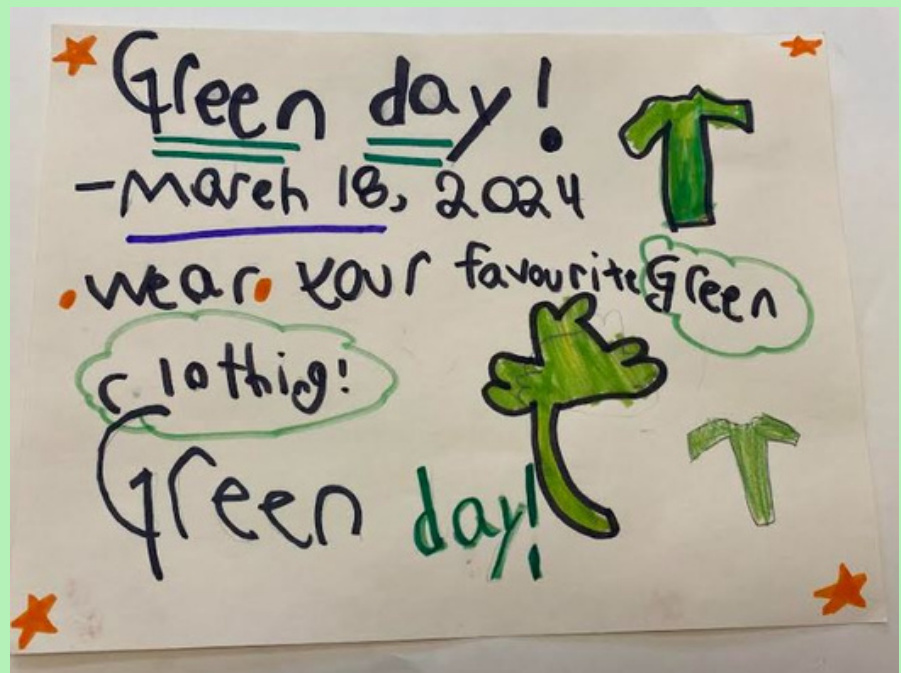 Green day!
- March 18, 2024
• wear • your favourite Green
clothing!
Green day!